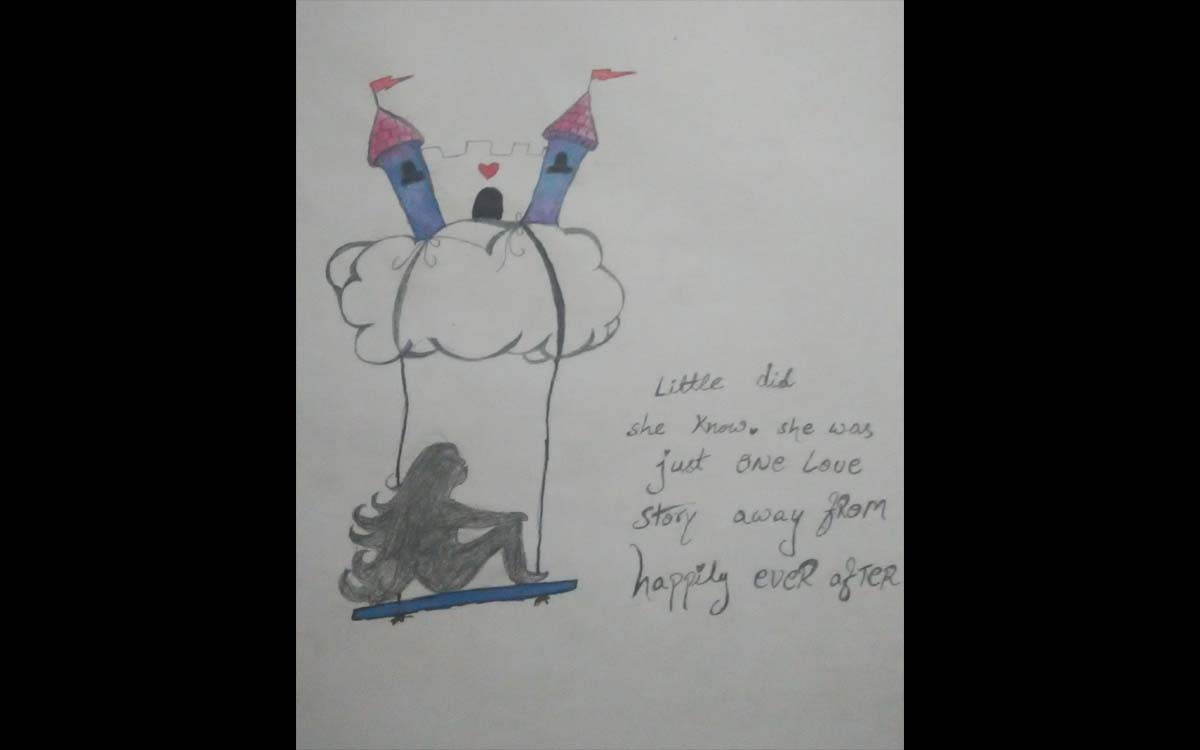 Little did
she know. she was
just ONE Love
story away fROM
happily eveR afTER